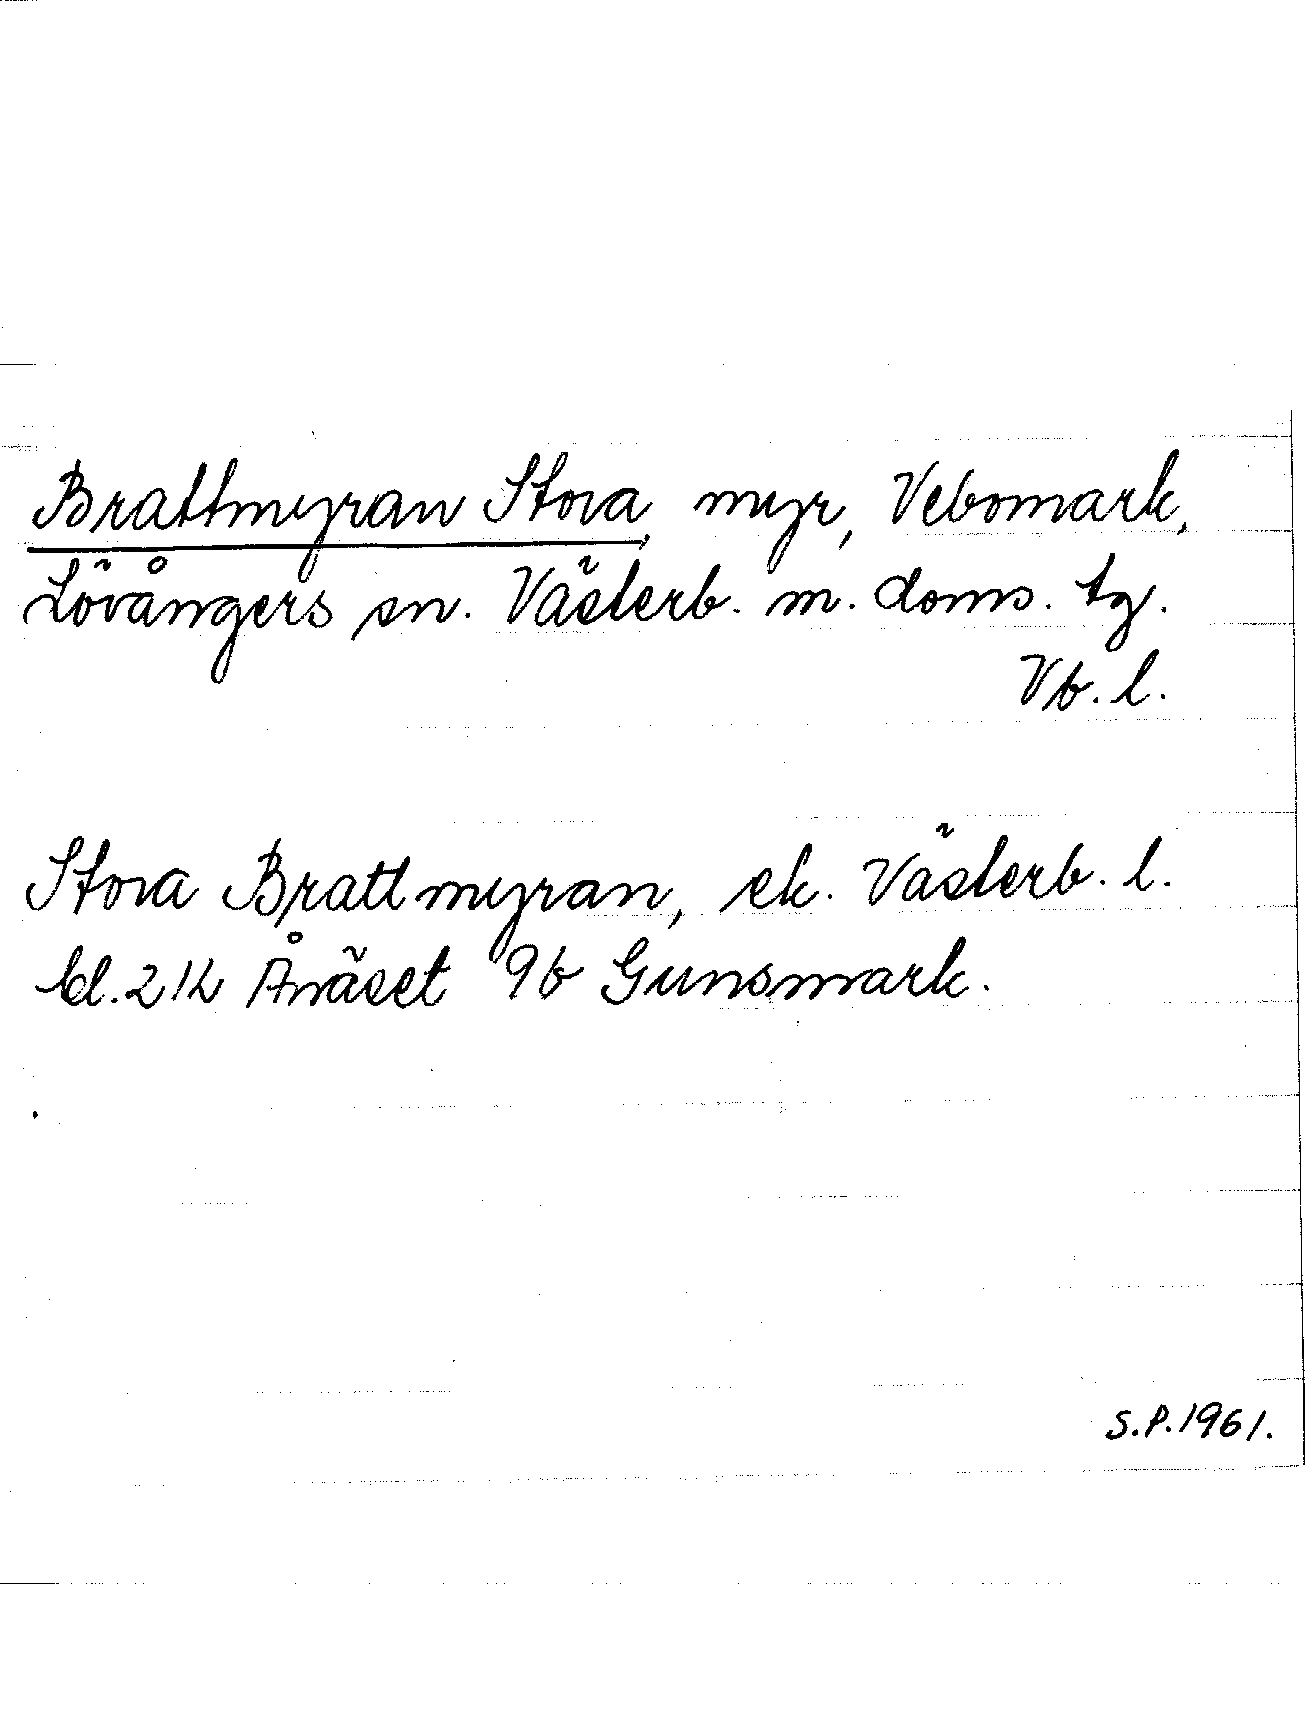 Brattmyran Stora, myr, Vebomark,
Lövångers sn. Västerb. m. doms. tg.
Vb. l.
Stora Brattmyran, ek. Västerb. l.
bl. 21K Ånäset 9b Gunsmark.
S.P. 1961.